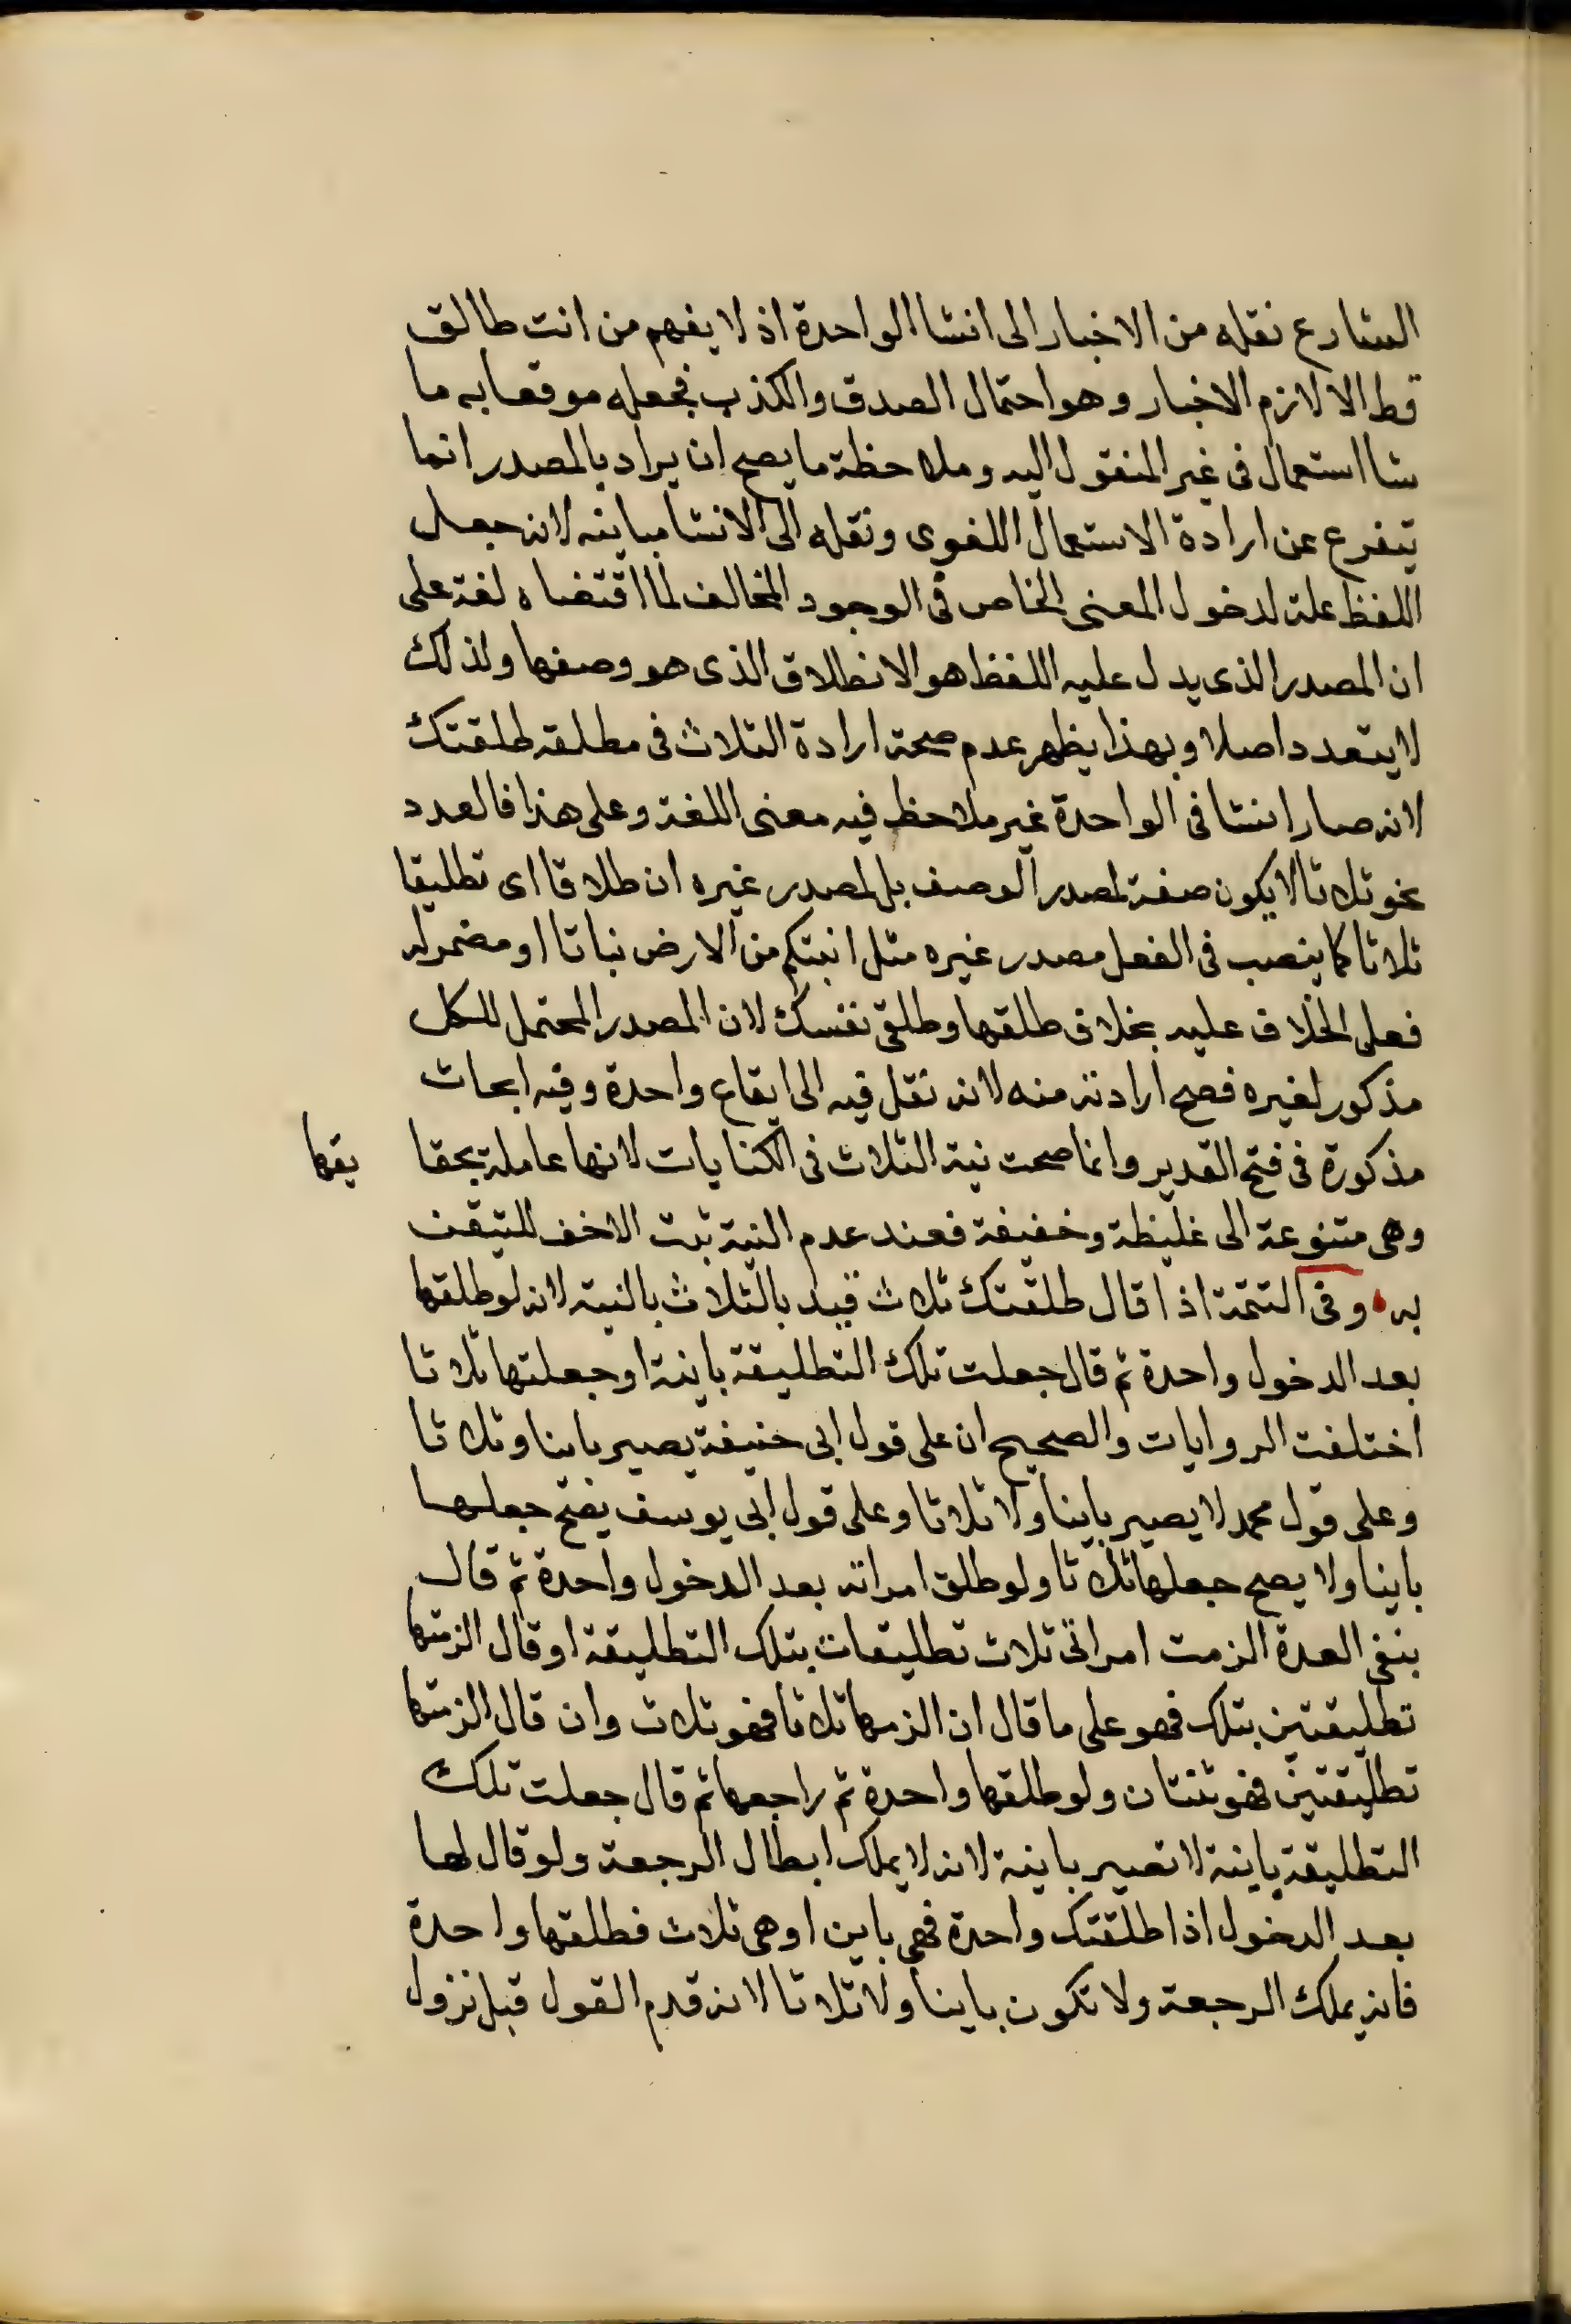 الشارع نقله من الاخبار الى انشا الواحدة اذ لا يفهم من انت طالق
قط الا لازم الاخبار وهو احتمال الصدق والكذب فجعله موقعا به ما
شا استعمال فى غير المنقول اليه وملاحظة ما يصح ان يراد بالمصدر انما
يتفرع عن ارادة الاستعمال اللغوى ونقله الى الانشا مباينه لانه جعل
اللفظ علة لدخول المعنى الخاص فى الوجود المخالف لما اقتضاه لغة على
ان المصدر الذى يدل عليه اللفظ هو الانطلاق الذى هو وصفها ولذلك
لا يتعدد اصلا وبهذا يظهر عدم صحة ارادة الثلاث فى مطلقة طلقتك
لانه صار انشا فى الواحدة غير ملاحظ فيه معنى اللغة وعلى هذا فالعدد
نحو ثلاثا لا يكون صفة لمصدر الوصف بل لمصدر غيره ان طلاقا اى تطليقا
ثلاثا كما ينصب فى الفعل مصدر غيره مثل انبتكم من الارض نباتا او مضمر له
فعلى الخلاف عليه بخلاف طلقها وطلقى نفسك لان المصدر المحتمل للكل
مذكور لغيره فصح ارادته منه لانه نقل فيه الى ايقاع واحدة وفيه ابحاث
مذكورة فى فتح القدير وانما صحت نية الثلاث فى الكنايات لانها عاملة بحقا يقها
وهى متنوعة الى غليظة وخفيفة فعند عدم النية ثبت الاخف للتيقن
به وفى التتمة اذا قال طلقتك ثلاث قيد بالثلاث بالنية لانه لو طلقها
بعد الدخول واحدة ثم قال جعلت تلك التطليقة باينة او جعلتها ثلاثا
اختلفت الروايات والصحيح ان على قول ابى حنيفة يصير باينا وثلاثا
وعلى قول محمد لا يصير باينا ولا ثلاثا وعلى قول ابى يوسف يصح جعلها
باينا ولا يصح جعلها ثلاثا ولو طلق امراته بعد الدخول واحدة ثم قال
بنفى العدة الزمت امراتى ثلاث تطليقات بتلك التطليقة او قال الزمتها
تطليقتين بتلك فهو على ما قال ان الزمها ثلاثا فهو ثلاث وان قال الزمتها
تطليقتين فهو ثنتان ولو طلقها واحدة ثم راجعها ثم قال جعلت تلك
التطليقة باينة لا تصير باينة لانه لا يملك ابطال الرجعة ولو قال لها
بعد الدخول اذا طلقتك واحدة فهى باين او هى ثلاث فطلقها واحدة
فانه يملك الرجعة ولا تكون باينا ولا ثلاثا لانه قدم القول قبل نزول